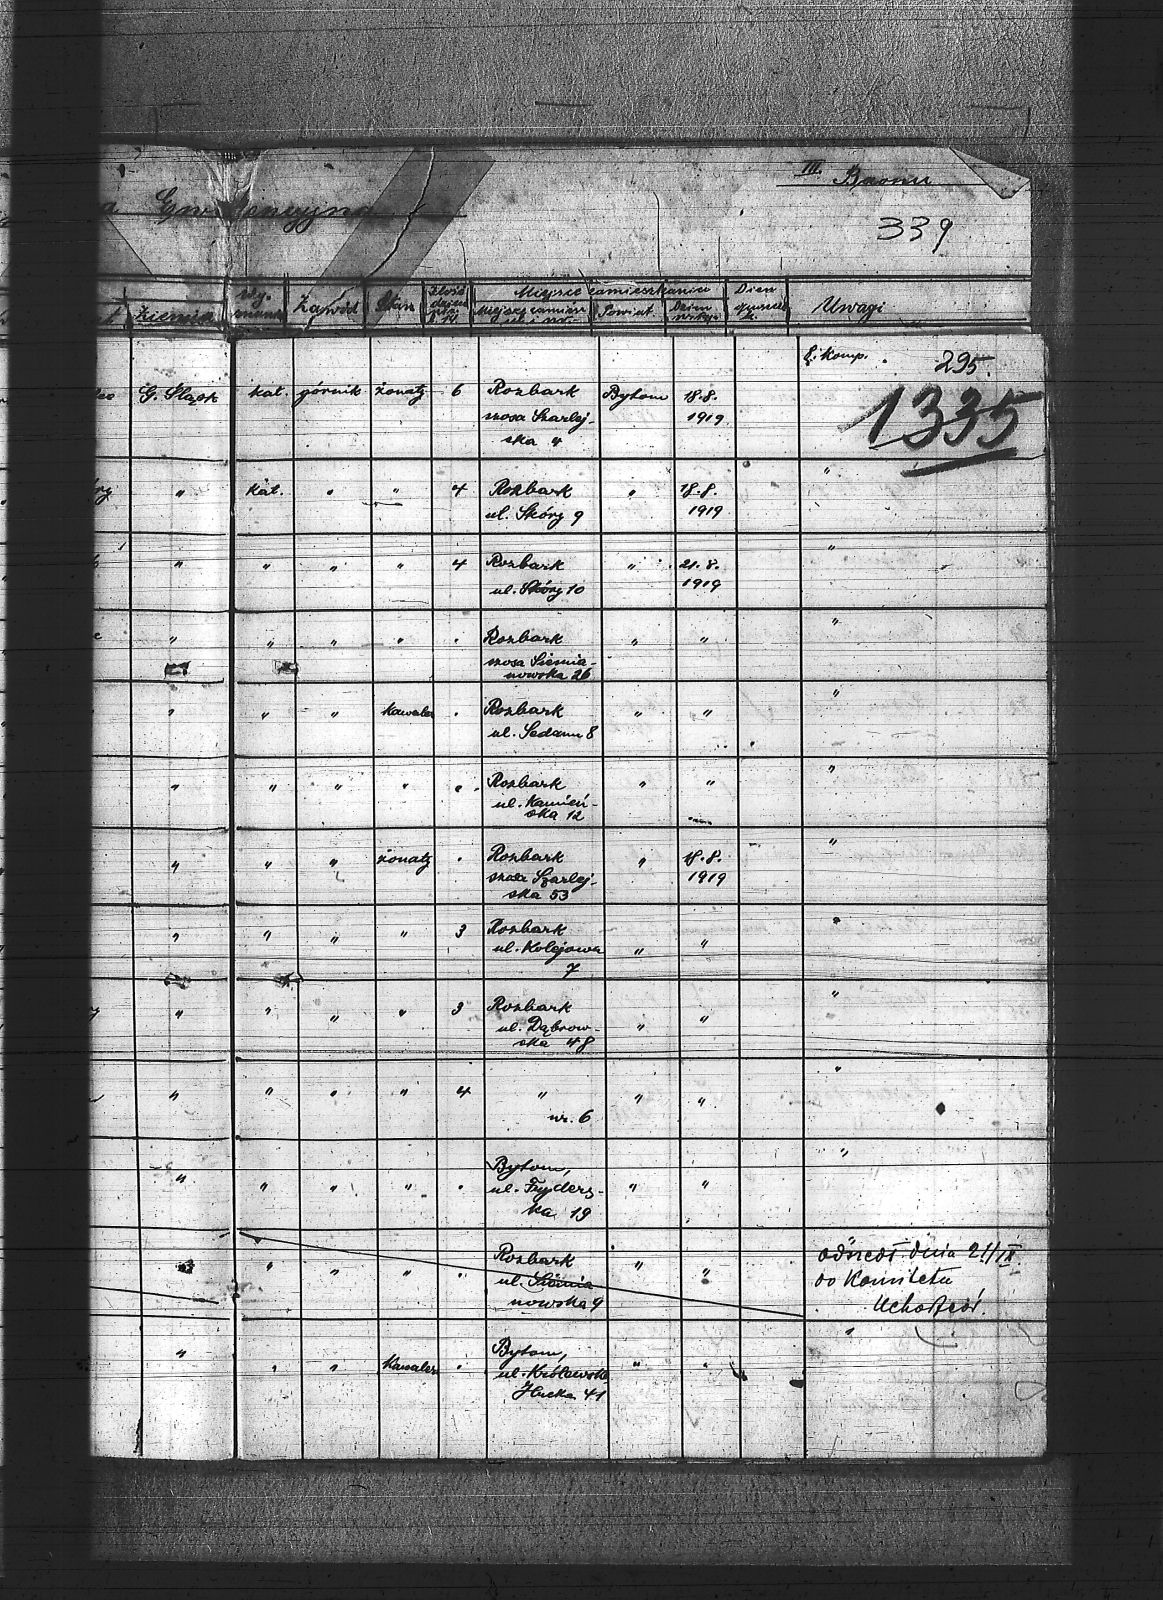 III. Baonu
339
Ziemia
Wyznanie
Zawód
Stan
Miejsce zamieszkania
Powiat
Dzień
Uwagi
8. komp. 295.
G. Śląsk kat. górnik żonaty 6 Rozbark Bytom 18.8.
1335
szosa Szarlej- 1919
ska 4
" kat. " " 4 Rozbark " 18.8. "
ul. Skóry 9 1919
" " " " 4 Rozbark " 21.8. "
ul. Skóry 10 1919
" " " " " Rozbark " " "
szosa Siemia-
nowska 26
" " " kawaler " Rozbark " " "
ul. Sedanu 8
" " " " " Rozbark " " "
ul. Kamień-
ska 12
" " " żonaty " Rozbark " 18.8. "
szosa Szarlej- 1919
ska 53
" " " " 3 Rozbark " " "
ul. Kolejowa
7
" " " " 3 Rozbark " " "
ul. Dąbrow-
ska 48
" " " " 4 " " " "
nr. 6
" " " " " Bytom, " " "
ul. Fryder-
ka 19
" " " " Rozbark " " odszedł dnia 21/IX
ul. Siemia do Komitetu
nowska 9 Uchodźców.
" " " Kawaler " Bytom, " " "
ul. Królewska
Hucka 41